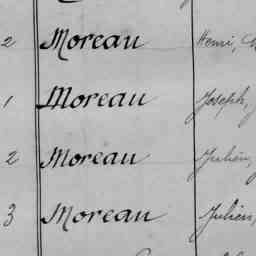 2 Moreau Henri,
1 Moreau Joseph,
2 Moreau Julien,
3 Moreau Julien,